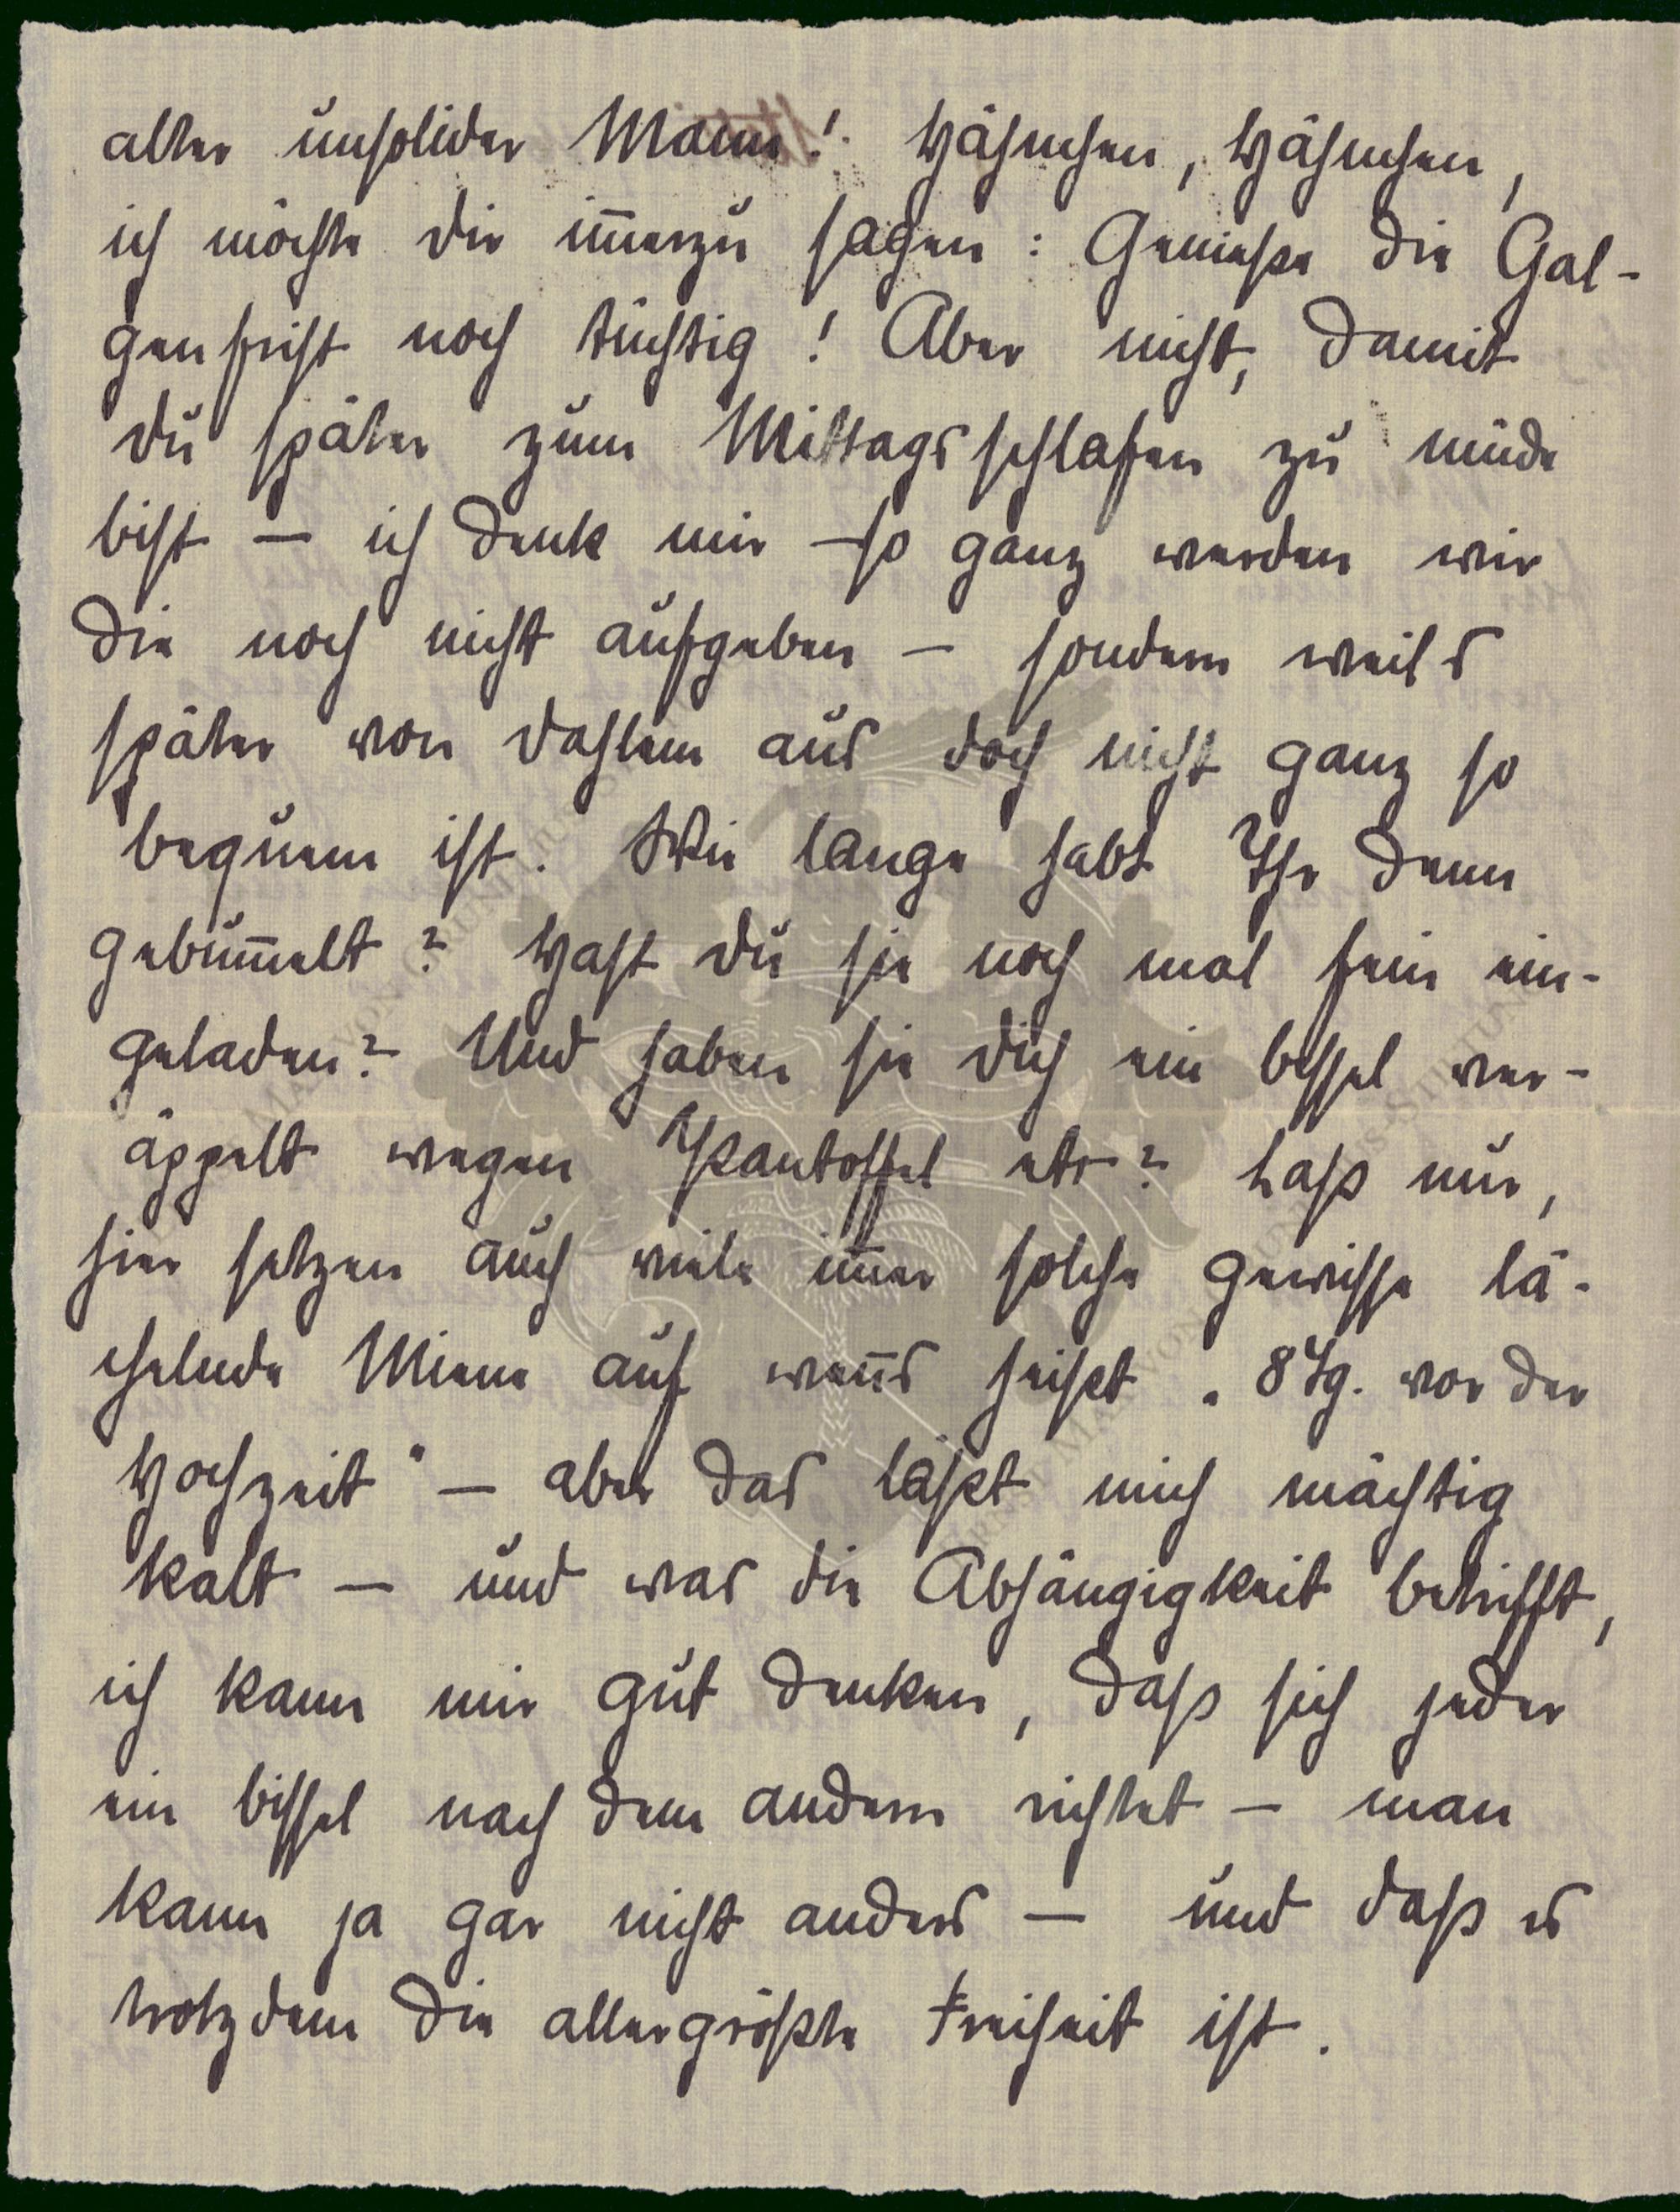 alter unsolider Mann! Hähnchen, Hähnchen,
ich möchte dir im̅erzu sagen: Genieße die Gal-
genfrist noch tüchtig! Aber nicht, damit
du später zum Mittagsschlafen zu müde
bist – ich denk mir so ganz werden wir
die noch nicht aufgeben – sondern weils
später von Dahlem aus doch nicht ganz so
bequem ist. Wie lange habt Ihr denn
gebum̅elt? Hast du sie noch mal fein ein-
geladen? Und haben sie dich ein bissel ver-
äppelt wegen Pantoffel etc? Laß nur,
hier setzen auch viele im̅er solche gewisse lä-
chelnde Miene auf wen̅s heißt „8 Tg. vor der
Hochzeit" – aber das läßt mich mächtig
kalt – und was die Abhängigkeit betrifft,
ich kann mir gut denken, daß sich jeder
ein bissel nach dem andern richtet – man
kann ja gar nicht anders – und daß es
trotzdem die allergrößte Freiheit ist.